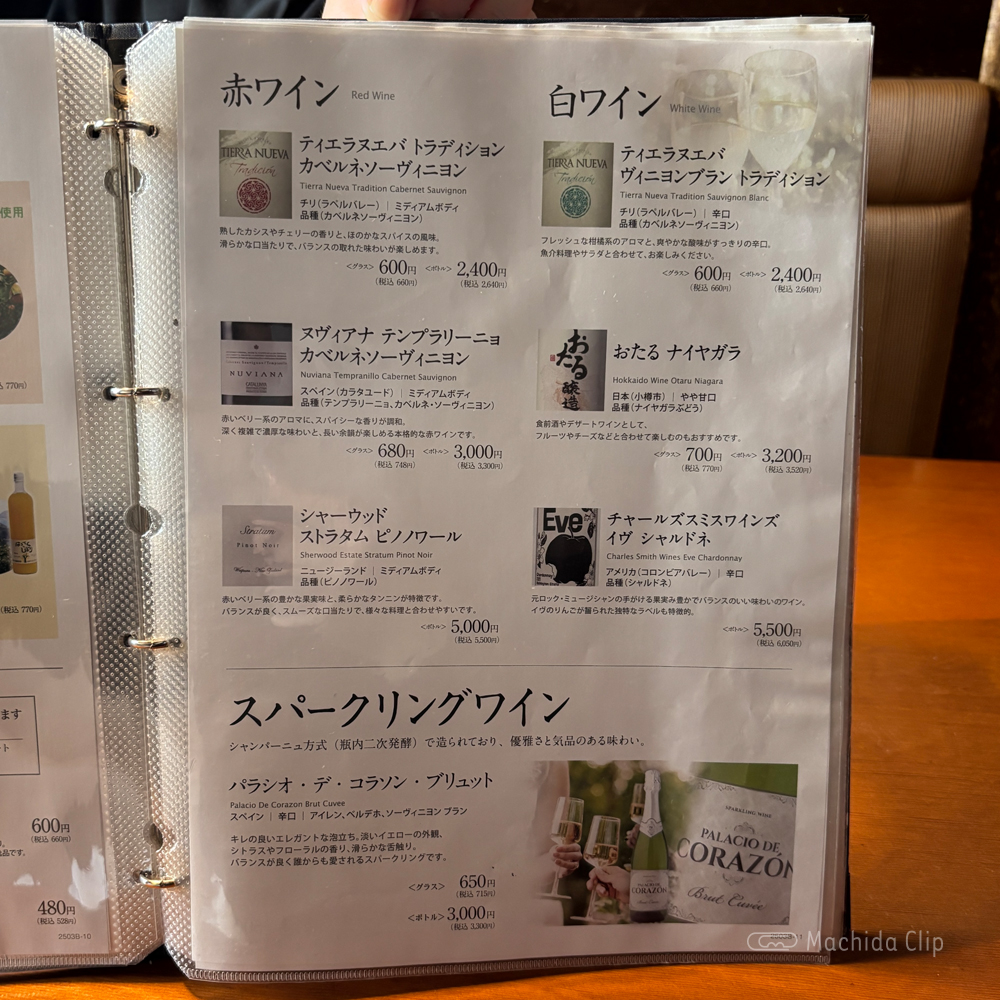 使用
770円)
(税込 770円)
ます
ート
600円
(税込 660円)
品です。
480円
(税込 528円)
2503B-10
赤ワイン Red Wine
TIERRA NUEVA
Tradición
ティエラヌエバ トラディション
カベルネソーヴィニヨン
Tierra Nueva Tradition Cabernet Sauvignon
チリ(ラペルバレー) | ミディアムボディ
品種(カベルネソーヴィニヨン)
熟したカシスやチェリーの香りと、ほのかなスパイスの風味。
滑らかな口当たりで、バランスの取れた味わいが楽しめます。
<グラス> 600円 <ボトル> 2,400円
(税込 660円) (税込 2,640円)
NUVIANA
ヌヴィアナ テンプラリーニョ
カベルネソーヴィニヨン
Nuviana Tempranillo Cabernet Sauvignon
スペイン(カラタユード) | ミディアムボディ
品種(テンプラリーニョ、カベルネ・ソーヴィニヨン)
赤いベリー系のアロマに、スパイシーな香りが調和。
深く複雑で濃厚な味わいと、長い余韻が楽しめる本格的な赤ワインです。
<グラス> 680円 <ボトル> 3,000円
(税込 748円) (税込 3,300円)
Stratum
Pinot Noir
シャーウッド
ストラタム ピノノワール
Sherwood Estate Stratum Pinot Noir
ニュージーランド | ミディアムボディ
品種(ピノノワール)
赤いベリー系の豊かな果実味と、柔らかなタンニンが特徴です。
バランスが良く、スムーズな口当たりで、様々な料理と合わせやすいです。
<ボトル> 5,000円
(税込 5,500円)
白ワイン White Wine
TIERRA NUEVA
Tradición
ティエラヌエバ
ヴィニヨンブラン トラディション
Tierra Nueva Tradition Sauvignon Blanc
チリ(ラペルバレー) | 辛口
品種(カベルネソーヴィニヨン)
フレッシュな柑橘系のアロマと、爽やかな酸味がすっきりの辛口。
魚介料理やサラダと合わせて、お楽しみください。
<グラス> 600円 <ボトル> 2,400円
(税込 660円) (税込 2,640円)
おたる
醸造
おたる ナイヤガラ
Hokkaido Wine Otaru Niagara
日本(小樽市) | やや甘口
品種(ナイヤガラぶどう)
食前酒やデザートワインとして、
フルーツやチーズなどと合わせて楽しむのもおすすめです。
<グラス> 700円 <ボトル> 3,200円
(税込 770円) (税込 3,520円)
Eve
チャールズスミスワインズ
イヴ シャルドネ
Charles Smith Wines Eve Chardonnay
アメリカ(コロンビアバレー) | 辛口
品種(シャルドネ)
元ロック・ミュージシャンの手がける果実み豊かでバランスのいい味わいのワイン。
イヴのりんごが齧られた独特なラベルも特徴的。
<ボトル> 5,500円
(税込 6,050円)
スパークリングワイン
シャンパーニュ方式(瓶内二次発酵)で造られており、優雅さと気品のある味わい。
パラシオ・デ・コラソン・ブリュット
Palacio De Corazon Brut Cuvee
スペイン | 辛口 | アイレン、ベルデホ、ソーヴィニヨン ブラン
キレの良いエレガントな泡立ち。淡いイエローの外観、
シトラスやフローラルの香り、滑らかな舌触り。
バランスが良く誰からも愛されるスパークリングです。
<グラス> 650円
(税込 715円)
<ボトル> 3,000円
(税込 3,300円)
CORAZÓN
SPARKLING WINE
PALACIO DE
CORAZÓN
Brut Cuvée
Machida Clip